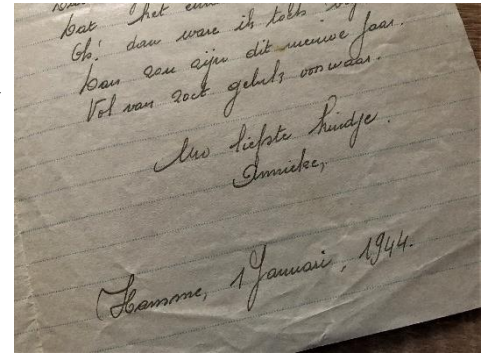 Dat het een
Och! dan ware ik toch
Dan zou zijn dit nieuwe Jaar.
Vol van zoet geluk voorwaar.
Uw liefste kindje.
Annieke,
Hamme, 1 Januari, 1944.